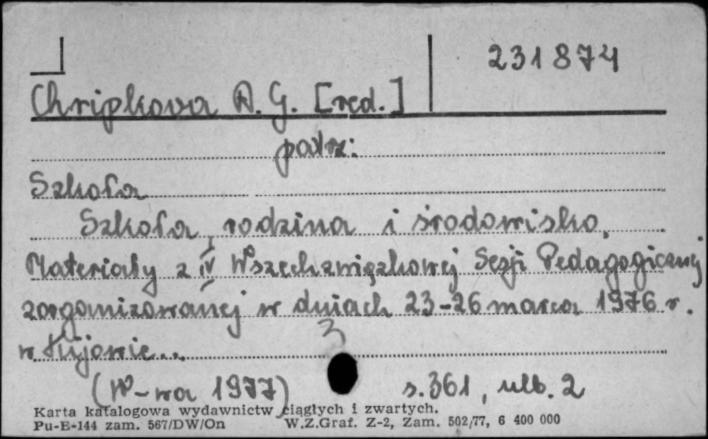 231874
Chripkova A. G. [red.]
patrz:
Szkoła
Szkoła, rodzina i środowisko.
Materiały z IV Wszechzwiązkowej Sesji Pedagogicznej
zorganizowanej w dniach 23-26 marca 1976 r.
w Kijowie...
(W-wa 1977) s. 361, nlb. 2
Karta katalogowa wydawnictw ciągłych i zwartych.
Pu-E-144 zam. 567/DW/On W.Z.Graf. Z-2, Zam. 502/77, 6 400 000